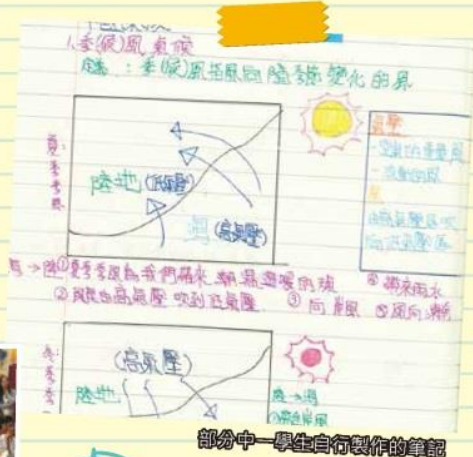 1.季(候)風氣候
定義：季(候)風指風向隨季節變化的風
夏季季風
陸地(低氣壓)
海(高氣壓)
氣壓
-空氣的重量
風
由高氣壓區吹
向低氣壓區
海→陸①夏季季風為我們帶來潮濕溫暖的
②風從高氣壓吹到低氣壓 ③向岸風
帶來雨水
冬季季
(高氣壓)
陸地
陸→海
①離岸風
部分中一學生自行製作的筆記